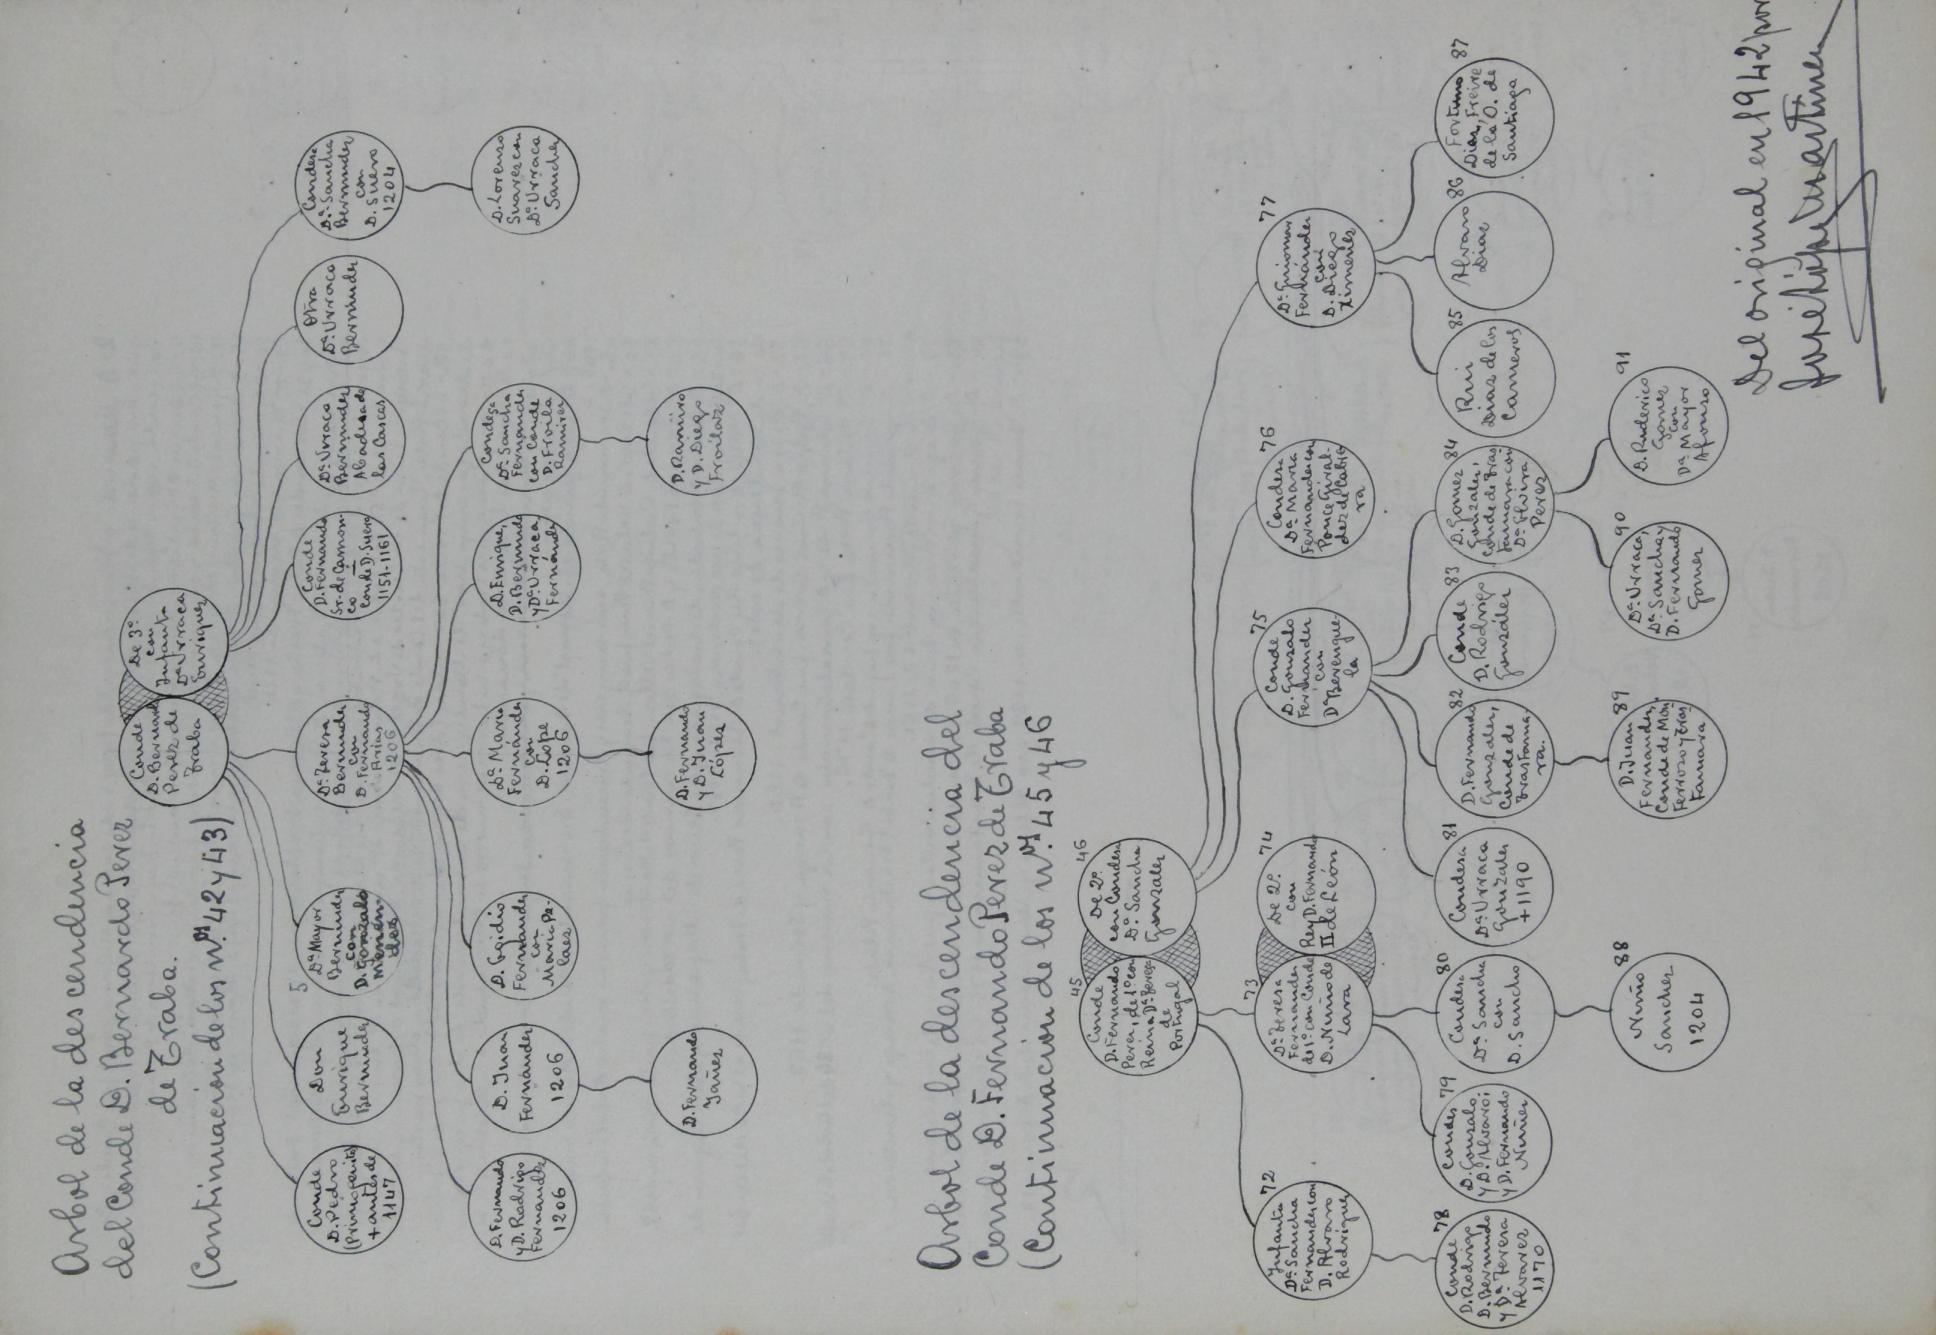 Arbol de la descendencia
del Conde D. Bernardo Perez
de Traba.
(Continuación de los nos. 42 y 43)
Conde
D. Bernardo
Perez de
Traba
De 3º
con
Infanta
Dª Urraca
Enriquez
Conde
D. Pedro
(Primogenito)
+ antes de
1147
Don
Enrique
Bermudez
5
Dª Mayor
Bermudez
con
D. Gonzalo
Menen-
dez
Dª Teresa
Bermudez
con
D. Fernando
Arias
1206
Conde
D. Fernando
Sr. de Camon-
co =
Conde D. Suero
1151-1161
Dª Urraca
Bermudez
Abadesa de
las Cascas
Otra
Dª Urraca
Bermudez
Condesa
Dª Sancha
Bermudez
con
D. Suero
1204
D. Fernando
y D. Rodrigo
Fernandez
1206
D. Juan
Fernández
1206
D. Egidio
Fernandez
con
Maria Pe-
laez
Dª Maria
Fernández
con
D. Lope
1206
D. Enrique,
D. Bermudo
y Dª Urraca
Fernández
Condesa
Dª Sancha
Fernandez
con Conde
D. Froila
Ramirez
D. Lorenzo
Suarez con
Dª Urraca
Sanchez
D. Fernando
Yañez
D. Fernando
y D. Juan
López
D. Ramiro
y D. Diego
Froilaz
Arbol de la descendencia del
Conde D. Fernando Perez de Traba
(Continuación de los nos. 45 y 46
45
Conde
D. Fernando
Perez, de 1º con
Reina Dª Teresa
de
Portugal
46
De 2º
con Condesa
Dª Sancha
Gonzalez
72
Infanta
Dª Sancha
Fernandez con
D. Alvaro
Rodriguez
73
Dª Teresa
Fernandez
de 1º con Conde
D. Nuño de
Lara
74
De 2º
con
Rey D. Fernando
II de León
75
Conde
D. Gonzalo
Fernandez
con
Dª Berengue-
la
76
Condesa
Dª Maria
Fernandez con
Ponce Giral-
dez de Cabre
ra
77
Dª Guiomar
Fernández
con
D. Diego
Ximenez
78
Conde
D. Rodrigo
D. Bermudo
y Dª Teresa
Alvarez
1170
79
Condes
D. Gonzalo
y D. Alvaro;
y D. Fernando
Nuñez
80
Condesa
Dª Sancha
con
D. Sancho
81
Condesa
Dª Urraca
Gonzalez
+ 1190
82
D. Fernando
Gonzalez,
Conde de
Trastama
ra.
83
Conde
D. Rodrigo
González
84
D. Gomez
Gonzalez,
Conde de Tras
tamara con
Dª Elvira
Perez
85
Rui
Diaz de los
Cameros
86
Alvaro
Diaz
87
Fortuno
Diaz, Freire
de la O. de
Santiago
88
Nuño
Sanchez
1204
89
D. Juan
Fernandez,
Conde de Mon
terroso y Tras
tamara
90
Dª Urraca,
Dª Sancha y
D. Fernando
Gomez
91
D. Ruderico
Gomez
con
Dª Mayor
Afonso
Del original en 1942 por